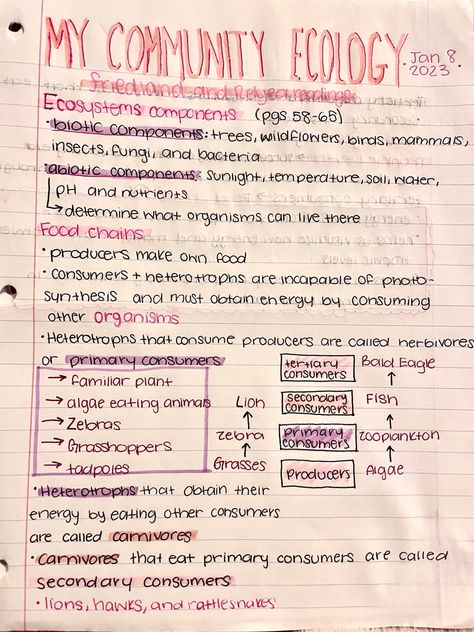 MY COMMUNITY ECOLOGY
Jan 8, 2023
Friedland and Relyea readings
Ecosystems components (pgs 58-65)
• biotic components: trees, wildflowers, birds, mammals,
insects, fungi, and bacteria
• abiotic components: sunlight, temperature, soil, water,
pH and nutrients
↳ determine what organisms can live there
Food chains
• producers make own food
• Consumers + heterotrophs are incapable of photo-
synthesis and must obtain energy by consuming
other organisms
• Heterotrophs that consume producers are called herbivores
or primary consumers
→ familiar plant
→ algae eating animals
→ Zebras
→ Grasshoppers
→ tadpoles
Lion
↑
Zebra
↑
Grasses
tertiary consumers
secondary consumers
primary consumers
Producers
Bald Eagle
↑
Fish
↑
zooplankton
↑
Algae
• Heterotrophs that obtain their
energy by eating other consumers
are called carnivores
• Carnivores that eat primary consumers are called
secondary consumers
• lions, hawks, and rattlesnakes